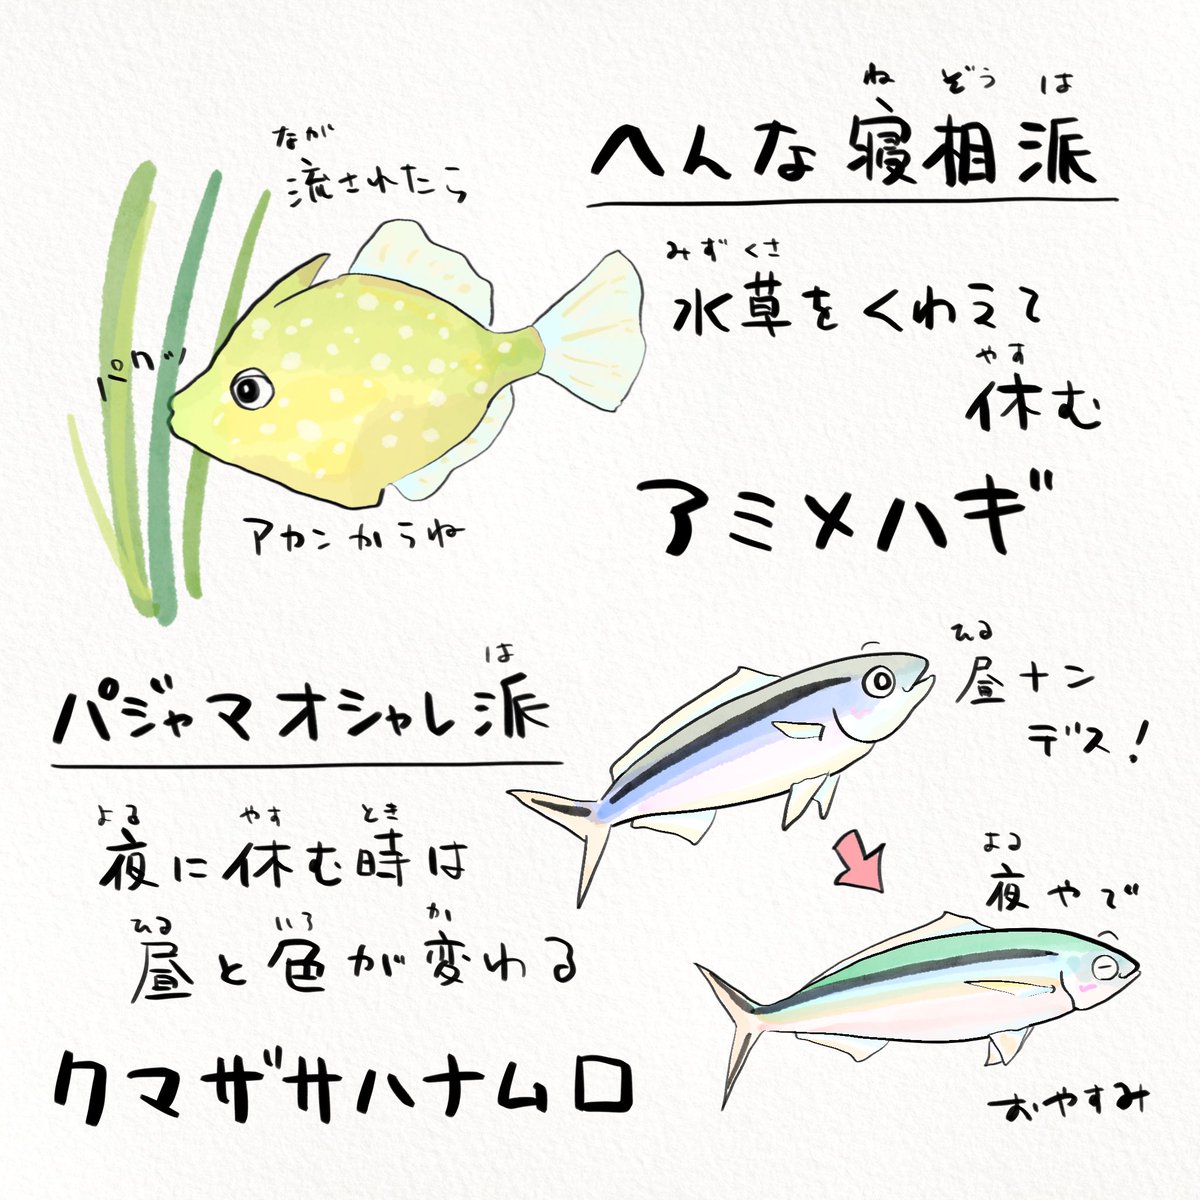 へんな寝相派
ねぞうは
流されたら
なが
水草をくわえて
みずくさ
休む
やす
アミメハギ
パクッ
アカンからね
パジャマオシャレ派
は
夜に休む時は
よるやすとき
昼と色が変わる
ひるいろか
クマザサハナムロ
昼ナン
ひる
デス!
夜やで
よる
おやすみ